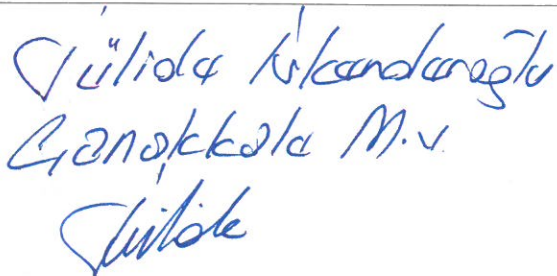 Jülide İskenderoğlu
Çanakkale M.V.
Jülide